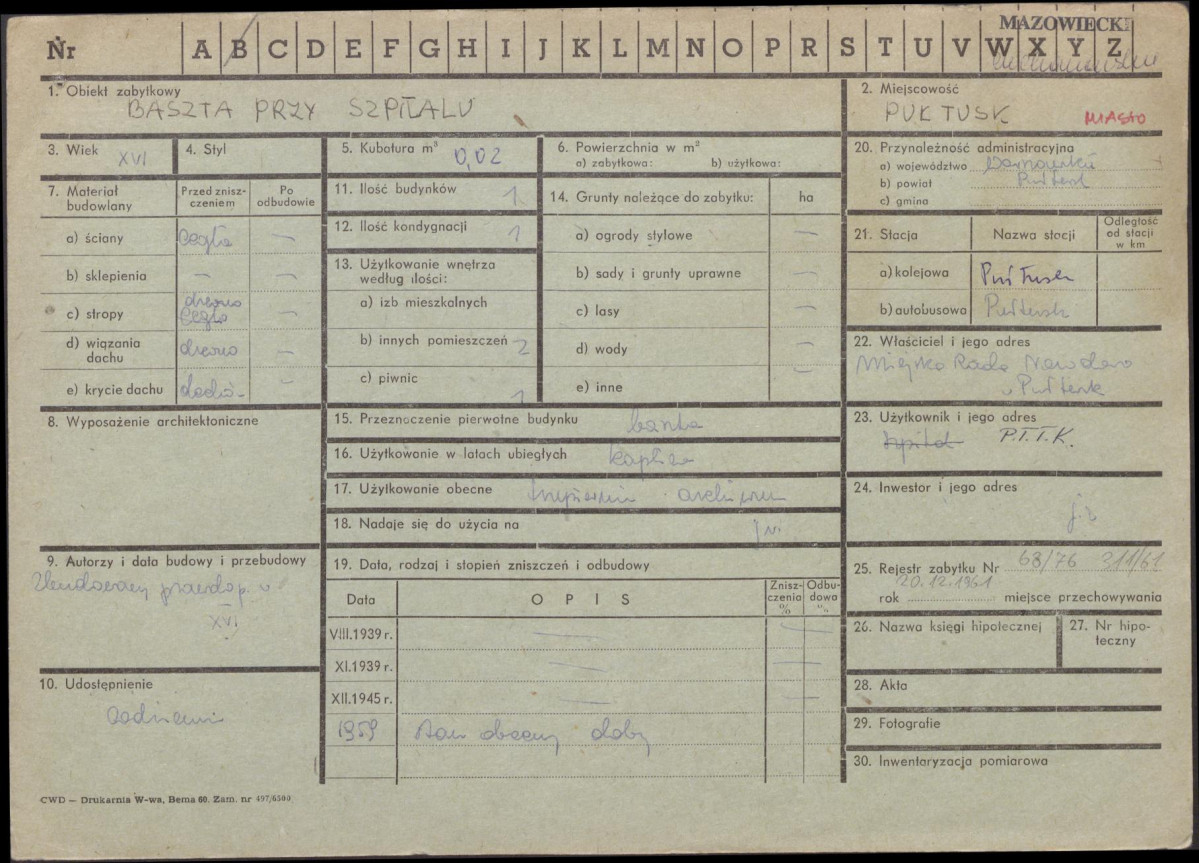 MAZOWIECKI
Nr A B C D E F G H I J K L M N O P R S T U V W X Y Z
1. Obiekt zabytkowy
BASZTA PRZY SZPITALU
2. Miejscowość
PUŁTUSK MIASTO
3. Wiek XVI
4. Styl
5. Kubatura m³ 0,02
6. Powierzchnia w m²
a) zabytkowa: b) użytkowa:
20. Przynależność administracyjna
a) województwo
b) powiat Pułtusk
c) gmina
7. Materiał budowlany
Przed zniszczeniem
Po odbudowie
a) ściany cegła —
b) sklepienia — —
c) stropy drewno cegła —
d) wiązania dachu drewno —
e) krycie dachu —
11. Ilość budynków 1
12. Ilość kondygnacji 1
13. Użytkowanie wnętrza według ilości:
a) izb mieszkalnych
b) innych pomieszczeń 2
c) piwnic 1
14. Grunty należące do zabytku: ha
a) ogrody stylowe —
b) sady i grunty uprawne —
c) lasy —
d) wody —
e) inne —
21. Stacja
Nazwa stacji
Odległość od stacji w km
a) kolejowa Pułtusk
b) autobusowa Pułtusk
22. Właściciel i jego adres
Miejska Rada Narodowa
w Pułtusk
8. Wyposażenie architektoniczne
15. Przeznaczenie pierwotne budynku baszta
16. Użytkowanie w latach ubiegłych kaplica
17. Użytkowanie obecne
18. Nadaje się do użycia na j.w.
23. Użytkownik i jego adres
szpital P.T.T.K.
24. Inwestor i jego adres
9. Autorzy i data budowy i przebudowy
Zbudowany prawdop. w
XVI
19. Data, rodzaj i stopień zniszczeń i odbudowy
Data OPIS Zniszczenia % Odbudowa %
VIII.1939 r. — —
XI.1939 r. — —
XII.1945 r. — —
1959 stan obecny dobry
25. Rejestr zabytku Nr 68/76 311/61
20.12.1961
rok miejsce przechowywania
26. Nazwa księgi hipotecznej
27. Nr hipoteczny
10. Udostępnienie
28. Akta
29. Fotografie
30. Inwentaryzacja pomiarowa
CWD — Drukarnia W-wa, Bema 60. Zam. nr 497/6500